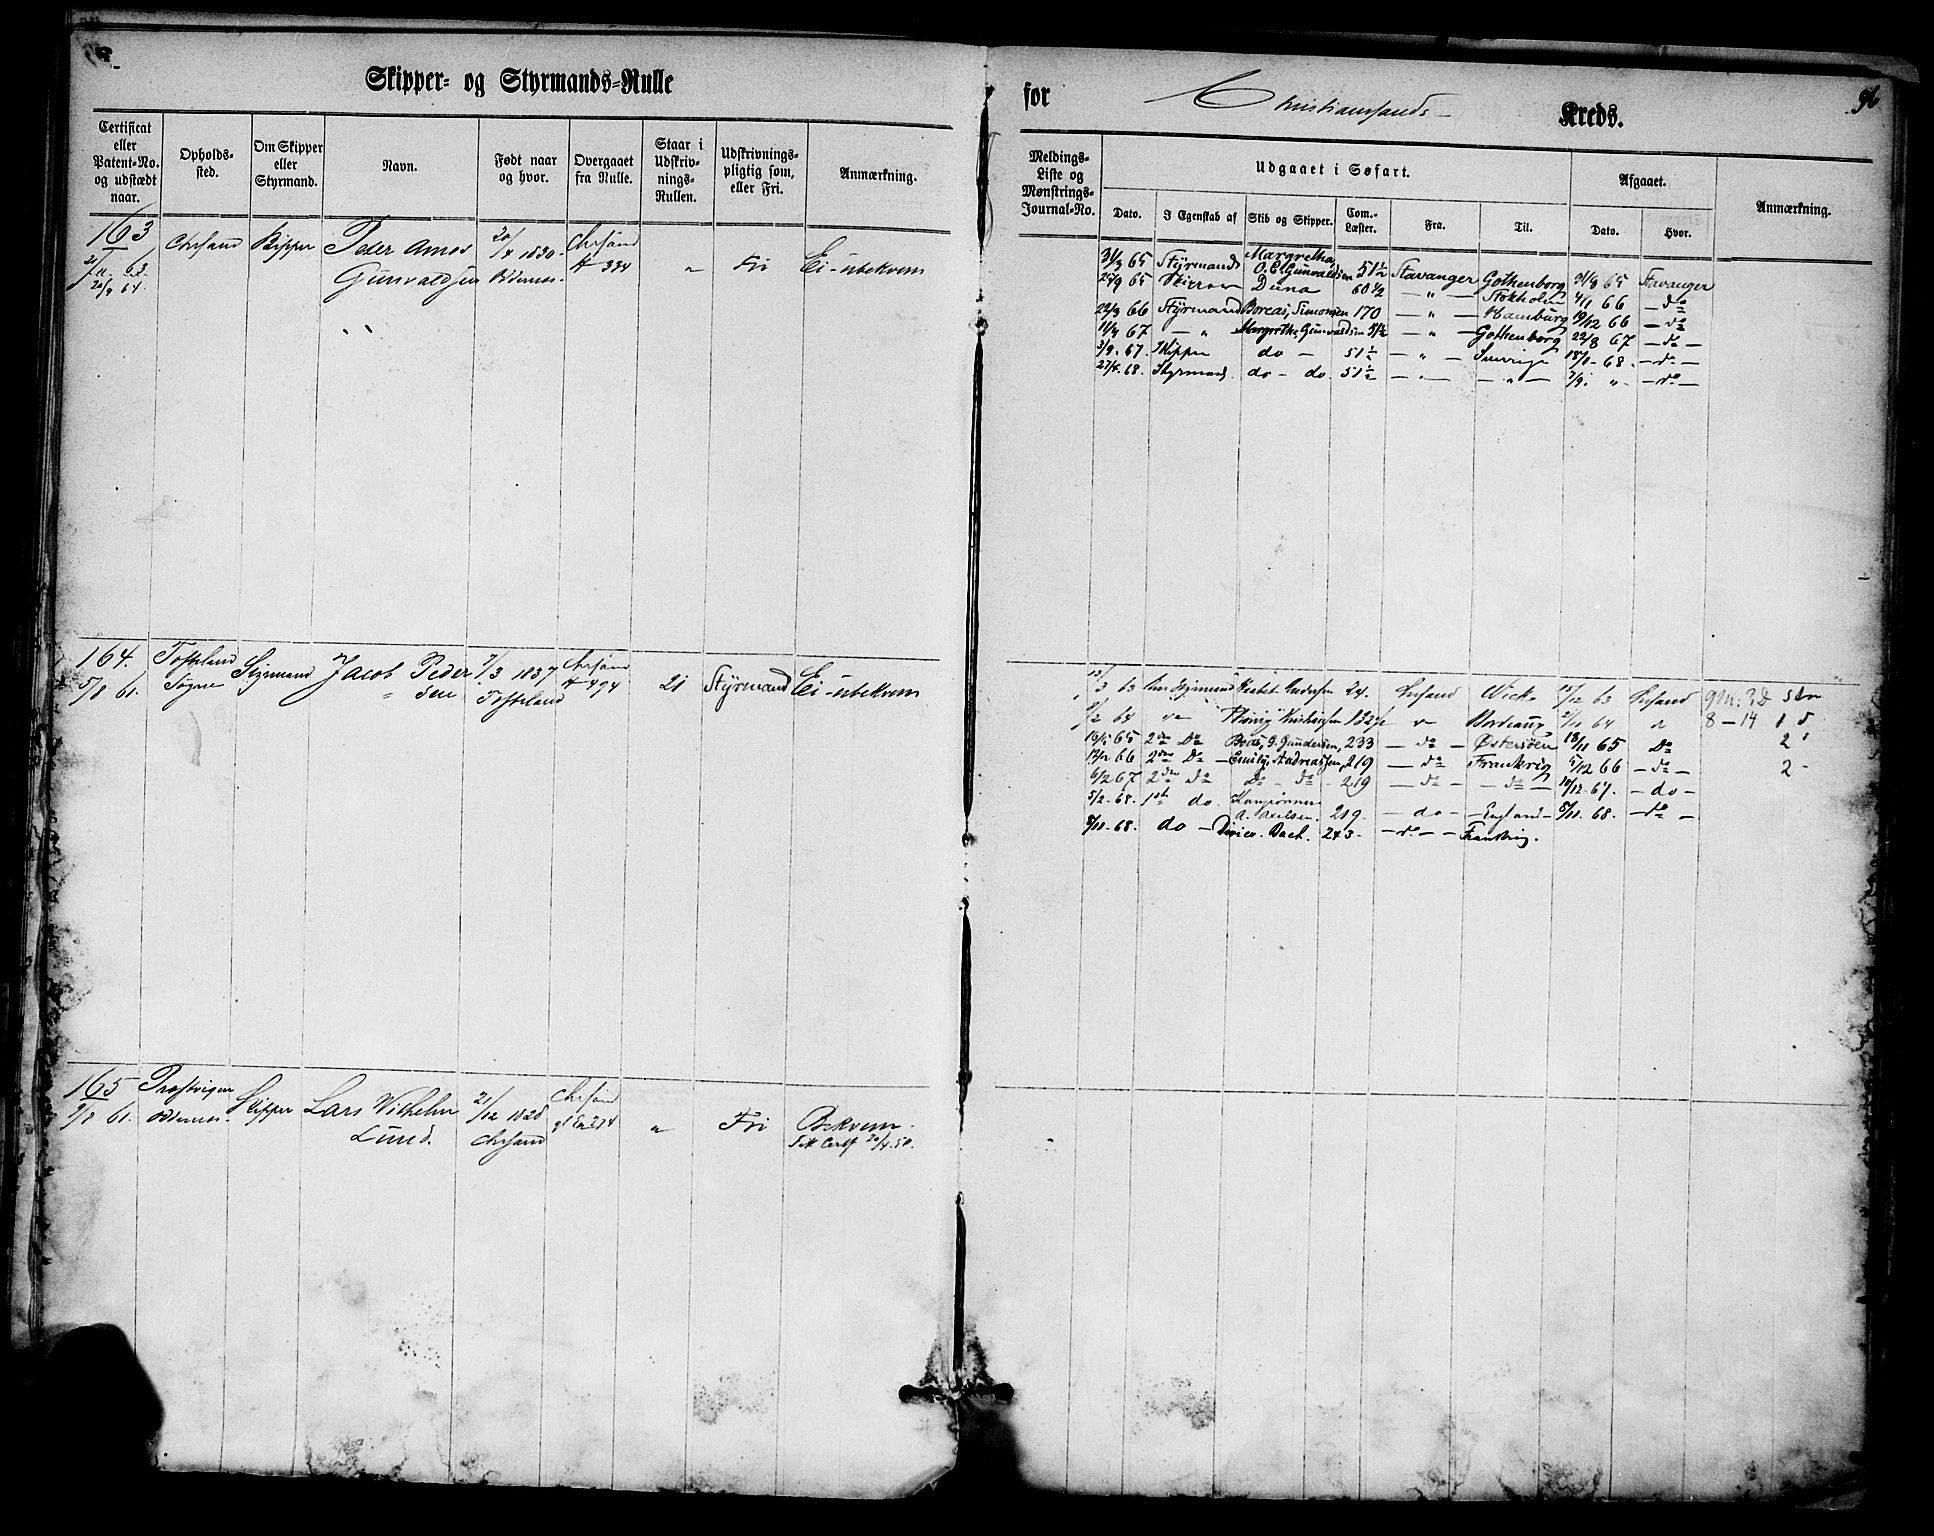 Skipper- og Styrmands-Rulle
for Christianssands Kreds. 96
Certificat eller Patent-No. og udstædt naar. Opholds-sted. Om Skipper eller Styrmand. Navn. Født naar og hvor. Overgaaet fra Rulle. Staar i Udskriv-nings-Rullen. Udskrivnings-pligtig som, eller Fri. Anmærkning.
Meldings-Liste og Mønstrings-Journal-No. Udgaaet i Søfart. Afgaaet. Anmærkning.
Dato. I Egenskab af Skib og Skipper. Com.-Læster. Fra. Til. Dato. Hvor.
163 Chrsand Skipper Peder Amos 20/4 1830 Chrsand
21/11 63 Gunvaldsen Oddernes 334 " Fri Ei-ubekvem
20/9 64.
31/3 65 Styrmand Margretha, O. E. Gunvaldsen 51½ Stavanger Gothenborg 31/8 65 Stavanger
25/9 65 Skipper Duna 60½ — " — Stokholm 4/1 66 — do
22/3 66 Styrmand Boreas, Simonsen 170 — " — Hamburg 19/12 66 — do
11/3 67 — " Margrethe, Gunvaldsen 51½ — " — Gothenborg 22/8 67 — do —
3/9. 67. Skipper do — 51½ — " — Sverrige 18/1. 68. — do —
27/4. 68. Styrmand. do — do. 51½ — " — — " — 7/9. " — do —
164. Tofteland Styrmand Jacob Peder 7/3 1837 Chrsand
5/8 61. Søgne sen Tofteland 494 21 Styrmand Ei-ubekvem
13/3 63 Andersen 24. Chrsand Wick 15/12 63 Chrsand
2/2 64 Kristiansen 132½ Bordeaux 2/11 64 8 — 14 1 5
13/5 65 2den Do Bodø, G. Gundersen, 233 — do — Østersøen 18/11 65 Do 2
17/2 66 2den Do — Emily, Andreassen, 219 — do Frankrig 5/12 66 — do — 2 -
6/2 67 2den do Do — do — 219 — do — — do — 10/12. 67. — do —
5/2. 68. 1ste do. A. Axelsen. 219. — do — England — 5/11. 68. — do —
8/11. 68. do — Bach. 243 — — do — Frankrig.
165 Skipper Lars Wilhelm 21/12 1828 Chrsand
9/8 61. Oddernes. Lund. Chrsand " Fri Bekvem.
Certf 20/4. 50.